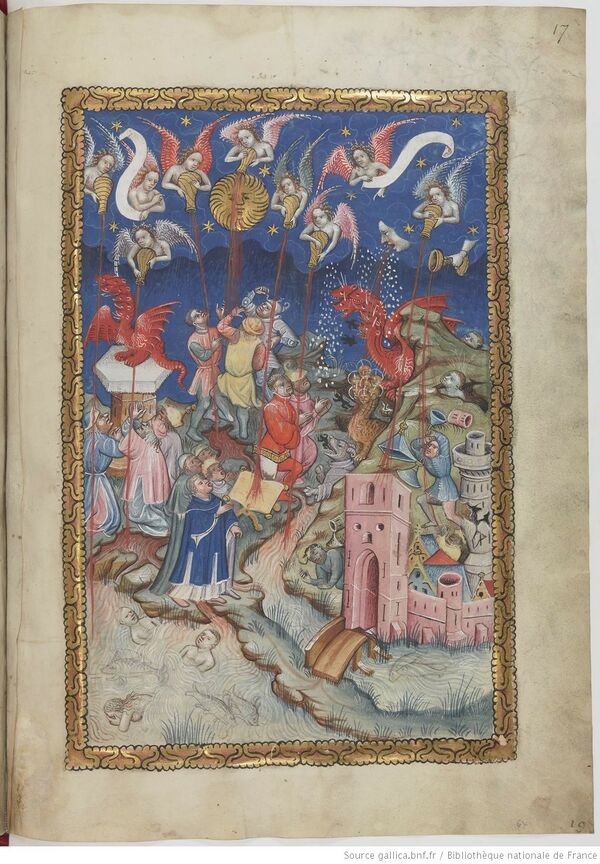 17
Source gallica.bnf.fr / Bibliothèque nationale de France